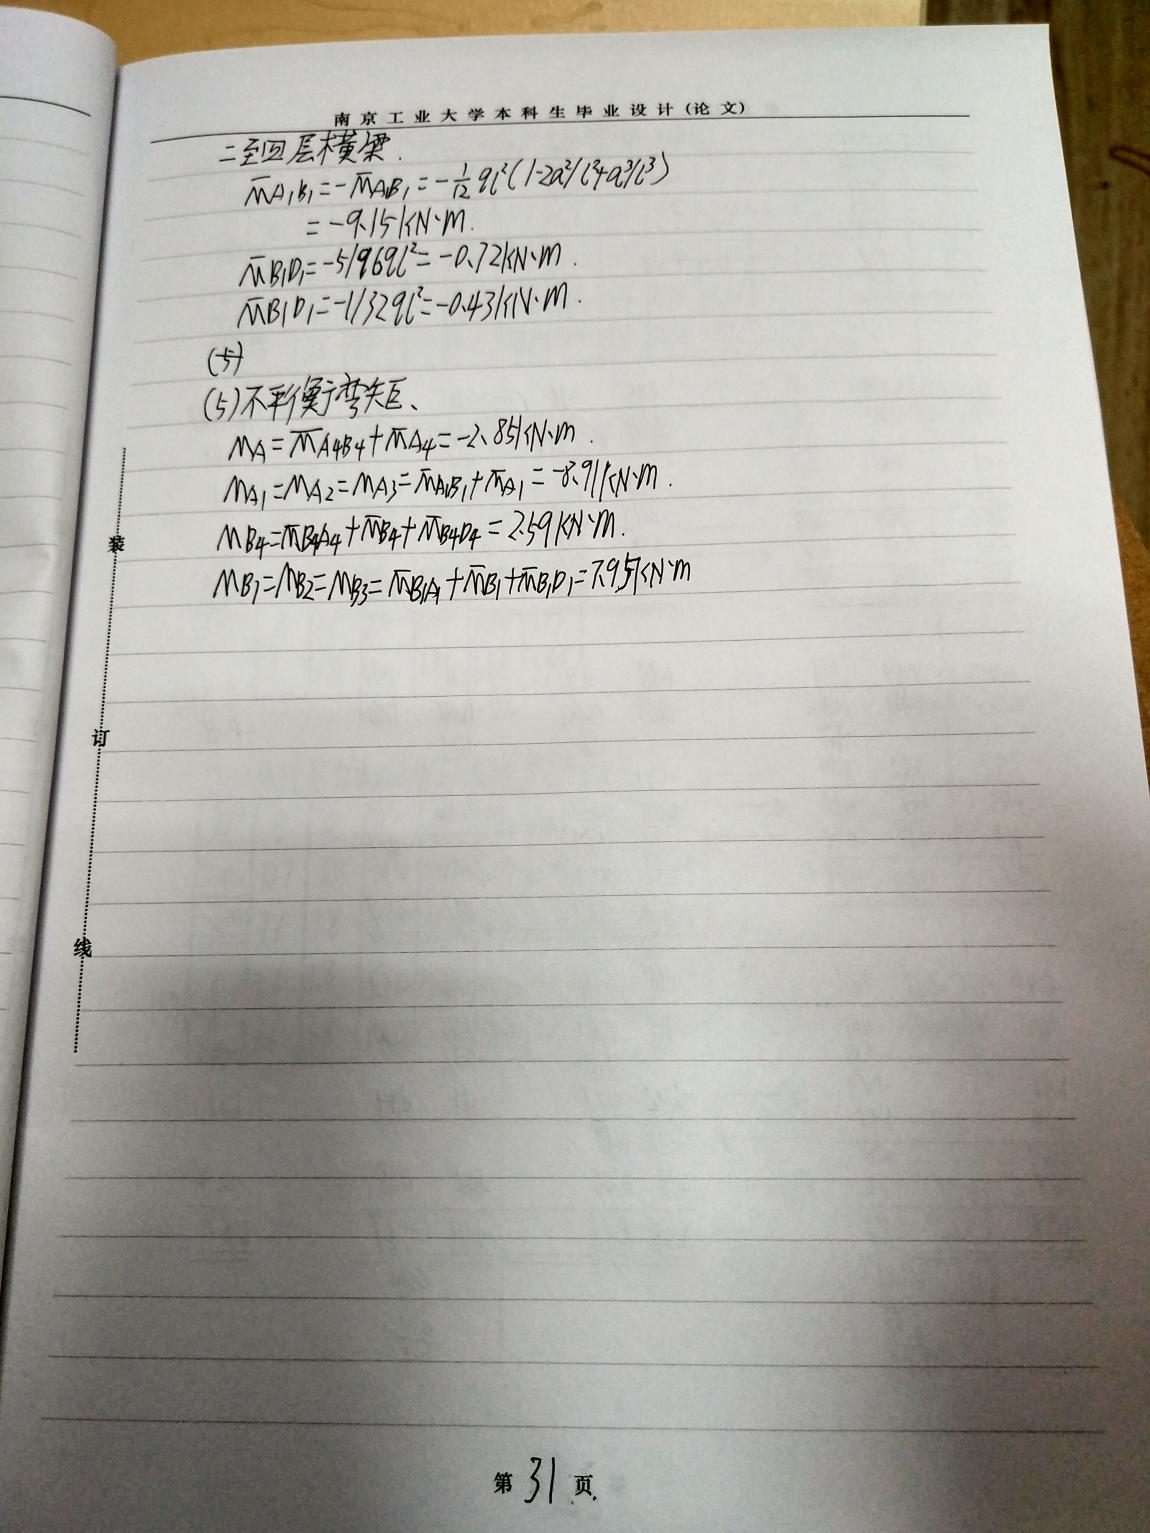 南京工业大学本科生毕业设计(论文)
二至四层横梁.
M̅A1B1=-M̅A1B1=-1/12 ql²(1-2a²/l²+a³/l³)
=-9.15kN·m.
M̅B1D1=-5/96ql²=-0.72kN·m.
M̅B1D1=-1/32ql²=-0.43kN·m.
(5)
(5)不平衡弯矩、
MA=M̅A4B4+M̅A4=-2.85kN·m.
MA1=MA2=MA3=M̅A1B1+M̅A1=-8.91kN·m.
MB4=M̅B4A4+M̅B4+M̅B4D4=2.59kN·m.
MB1=MB2=MB3=M̅B1A1+M̅B1+M̅B1D1=7.95kN·m
装
订
线
第31页.